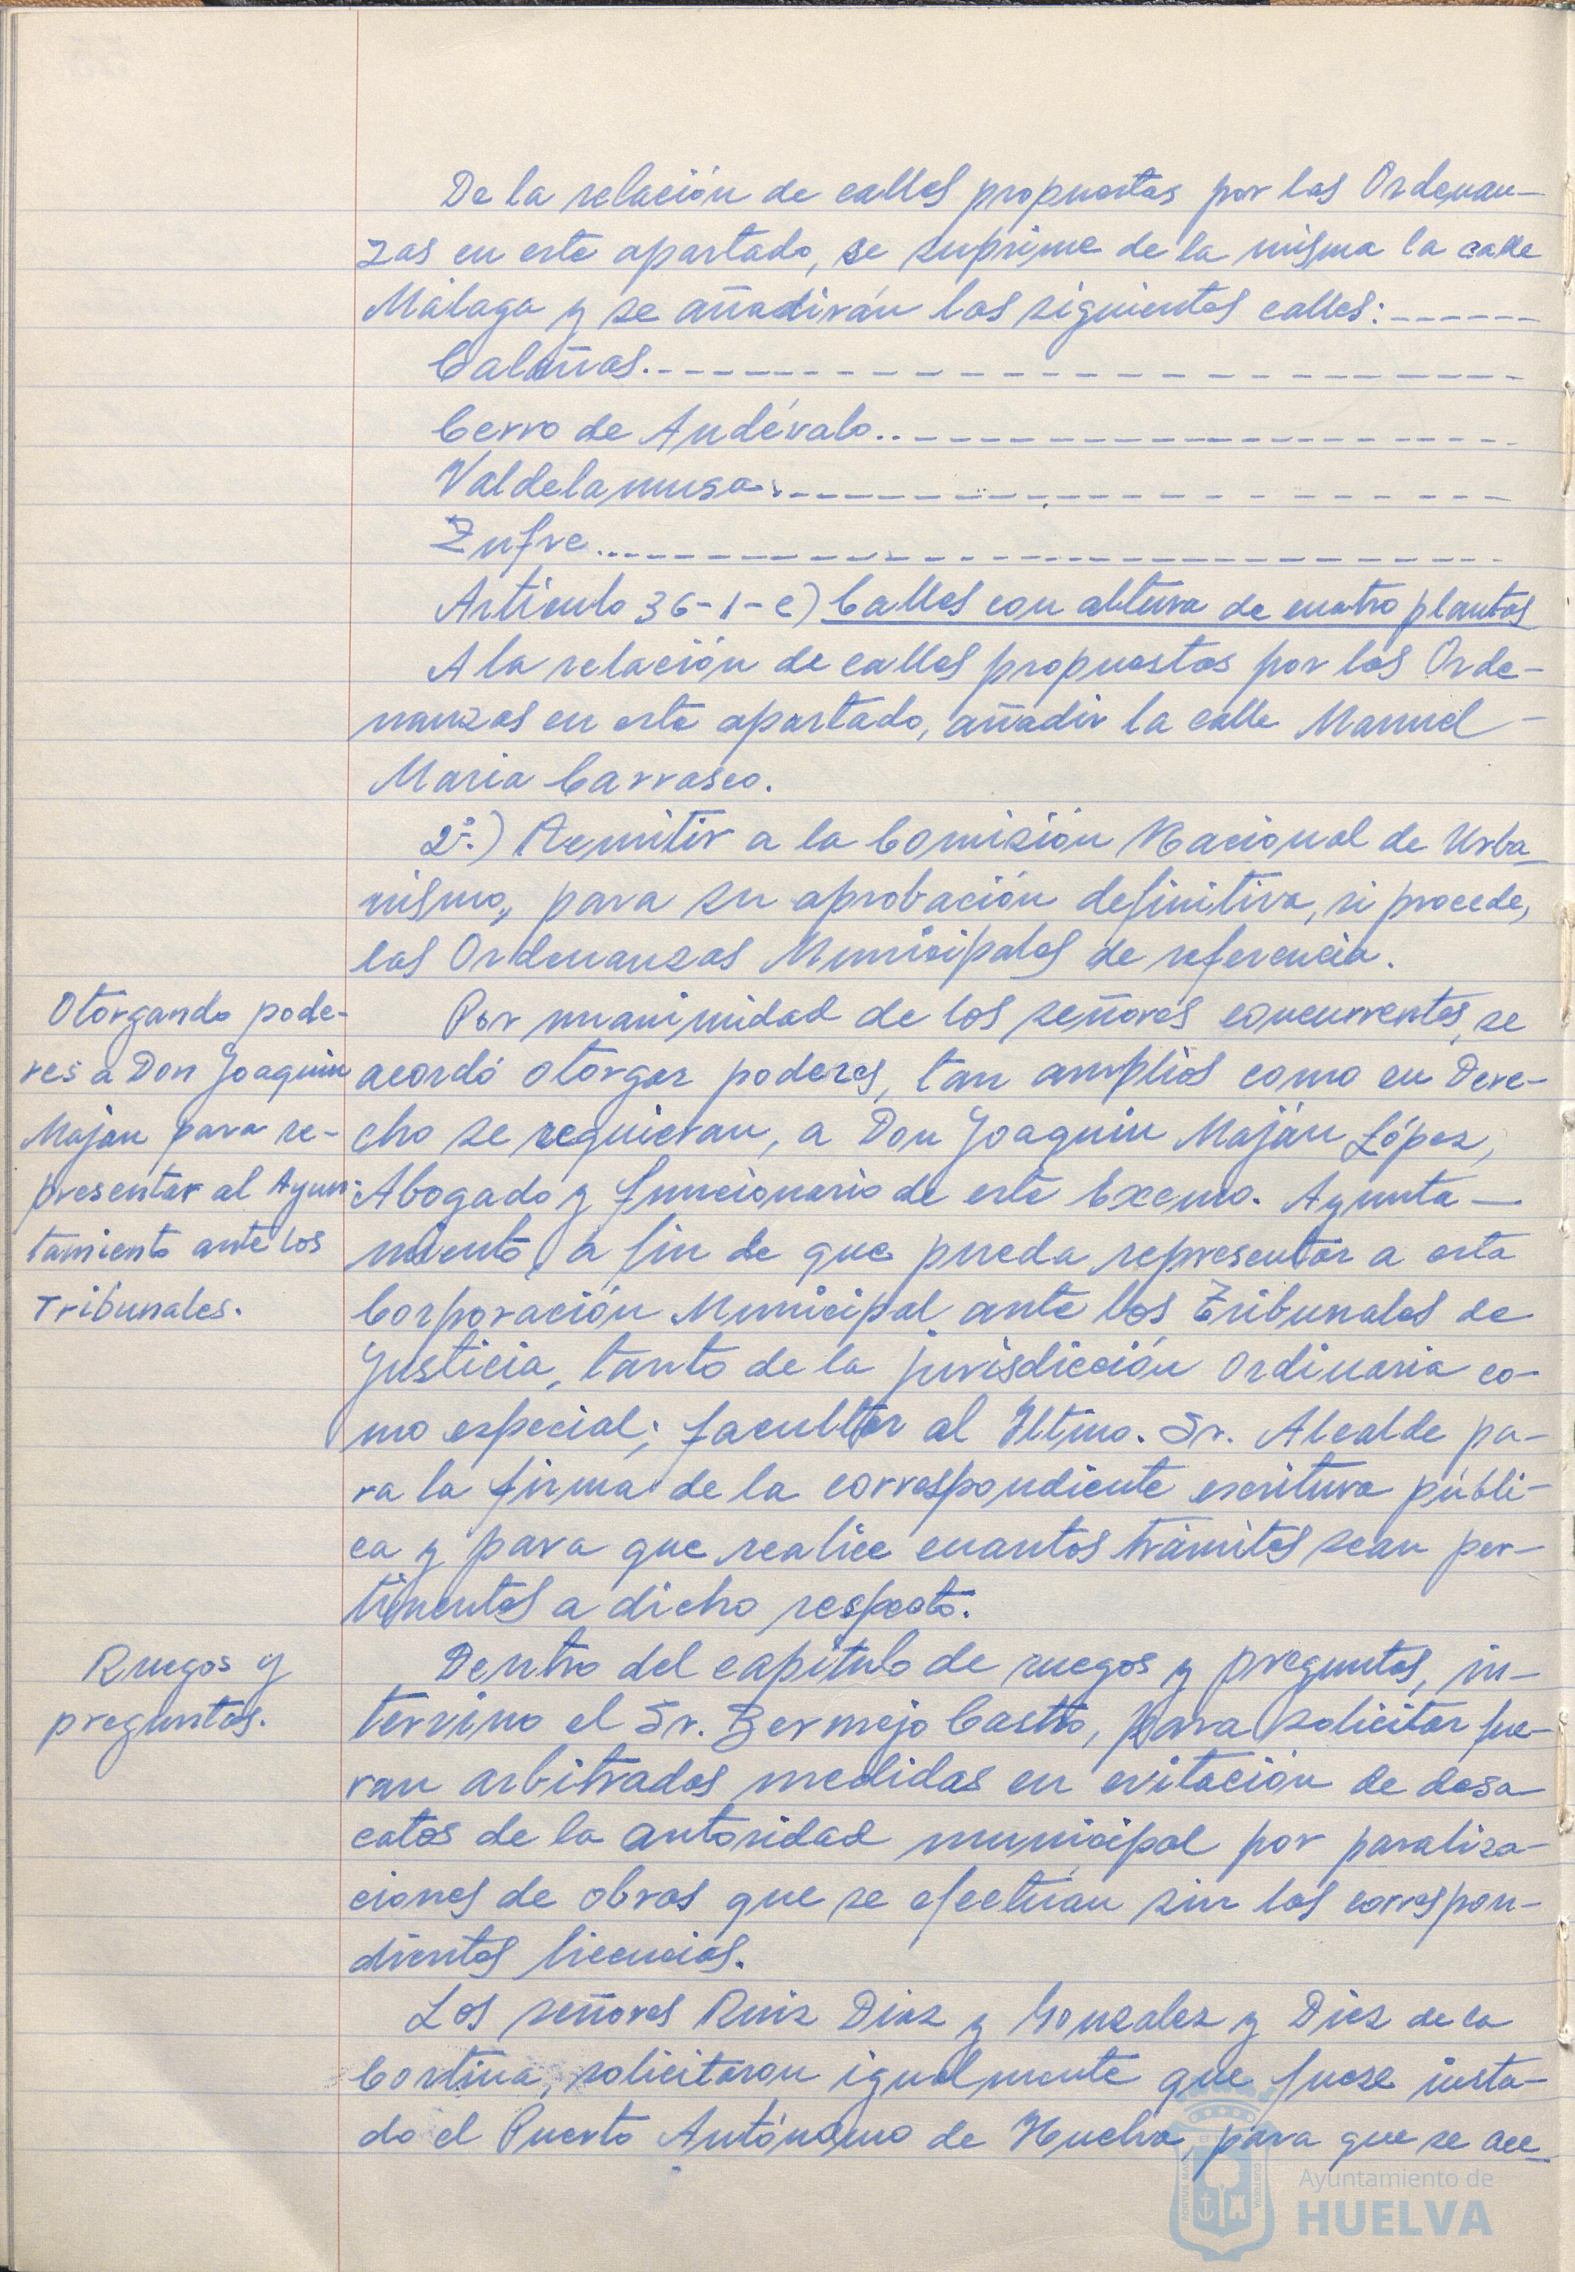 De la relación de calles propuestas por las Ordenan-
zas en este apartado, se suprime de la misma la calle
Málaga y se añadirán las siguientes calles:------
Calañas.------
Cerro de Andévalo..------
Valdelamusa.------
Zufre...------
Artículo 36-1-e) Calles con altura de cuatro plantas
A la relación de calles propuestas por las Orde-
nanzas en este apartado, añadir la calle Manuel -
Maria Carrasco.
2º.) Remitir a la Comisión Nacional de Urba-
nismo, para su aprobación definitiva, si procede,
las Ordenanzas Municipales de referencia.
Otorgando pode-
res a Don Joaquin
Majan para re-
presentar al Ayun-
tamiento ante los
Tribunales.
Por unanimidad de los señores concurrentes, se
acordó otorgar poderes, tan amplios como en Dere-
cho se requieran, a Don Joaquin Maján López,
Abogado y funcionario de este Excmo. Ayunta-
miento, a fin de que pueda representar a esta
Corporación Municipal ante los Tribunales de
Justicia, tanto de la jurisdicción Ordinaria co-
mo especial; facultar al Iltmo. Sr. Alcalde pa-
ra la firma de la correspondiente escritura públi-
ca y para que realice cuantos trámites sean per-
tinentes a dicho respecto.
Ruegos y
preguntas.
Dentro del capítulo de ruegos y preguntas, in-
tervino el Sr. Bermejo Castro, para solicitar fue-
ran arbitradas medidas en evitación de desa-
catos de la autoridad municipal por paraliza-
ciones de obras que se efectúan sin las correspon-
dientes licencias.
Los señores Ruiz Diaz y Gonzalez y Diez de la
Cortina, solicitaron igualmente que fuese insta-
do el Puerto Autónomo de Huelva, para que se ace-
PORTUS MARIS
CUSTODIA
Ayuntamiento de
HUELVA